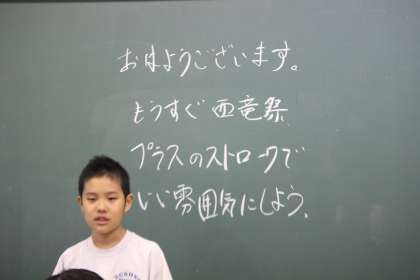 おはようございます。
もうすぐ西竜祭
プラスのストロークで
いい雰囲気にしよう。